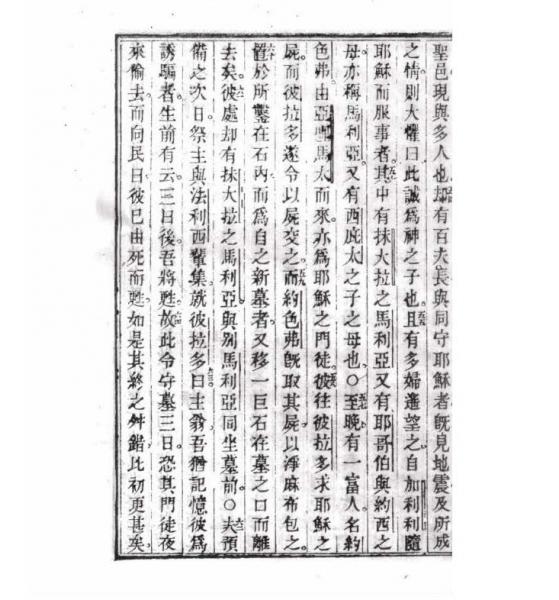 聖邑現與多人也却有百夫長與同守耶穌者旣見地震及所成
之情則大懼曰此誠爲神之子也。且有多婦遙望之自加利利隨
耶穌而服事者。其中有抹大拉之馬利亞又有耶哥伯與約西之
母亦稱馬利亞。又有西庇太之子之母也。○至晚有一富人名約
色弗由亞哩馬太而來。亦爲耶穌之門徒。彼往彼拉多求耶穌之
屍。而彼拉多遂令以屍交之。而約色弗旣取其屍。以淨麻布包之。
置於所鑿在石內而爲自之新墓者。又移一巨石在墓之口而離
去矣。彼處却有抹大拉之馬利亞與別馬利亞同坐墓前。○夫預
備之次日。祭主與法利西輩集就彼拉多曰。主翁。吾猶記憶彼爲
誘騙者。生前有云。三日後。吾將甦。故此令守墓三日。恐其門徒夜
來偷去。而向民曰。彼已由死而甦。如是其終之舛錯。比初更甚矣。